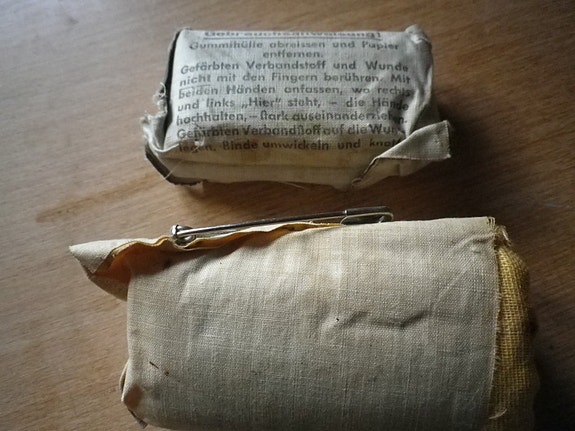 Gebrauchsanweisung!
Gummihülle abreissen und Papier
entfernen.
Gefärbten Verbandstoff und Wunde
nicht mit den Fingern berühren. Mit
beiden Händen anfassen, wo rechts
und links „Hier" steht, – die Hände
hochhalten, – stark auseinanderziehen.
Gefärbten Verbandstoff auf die Wunde
legen, Binde umwickeln und